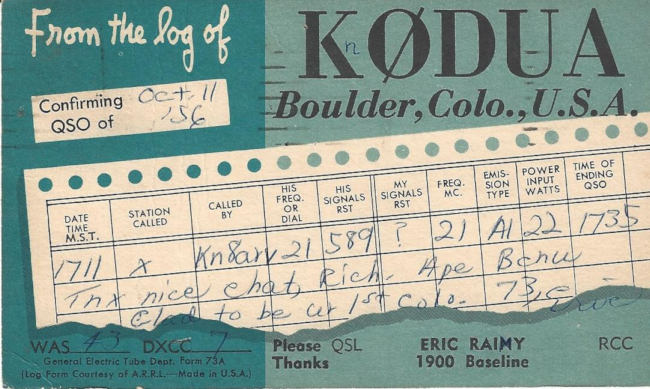 From the log of
KnØDUA
Boulder, Colo., U.S.A.
Confirming QSO of
Oct. 11 '56
DATE TIME M.S.T.
STATION CALLED
CALLED BY
HIS FREQ. OR DIAL
HIS SIGNALS RST
MY SIGNALS RST
FREQ. MC.
EMIS- SION TYPE
POWER INPUT WATTS
TIME OF ENDING QSO
1711 X Kn8arv 21 589 ? 21 A1 22 1735
Tnx nice chat, Rich. Ape Bcnu
Glad to be ur 1st Colo. 73, Eric
WAS 43 DXCC 7
Please QSL
Thanks
ERIC RAIMY
1900 Baseline
RCC
General Electric Tube Dept. Form 73A
(Log Form Courtesy of A.R.R.L.—Made in U.S.A.)